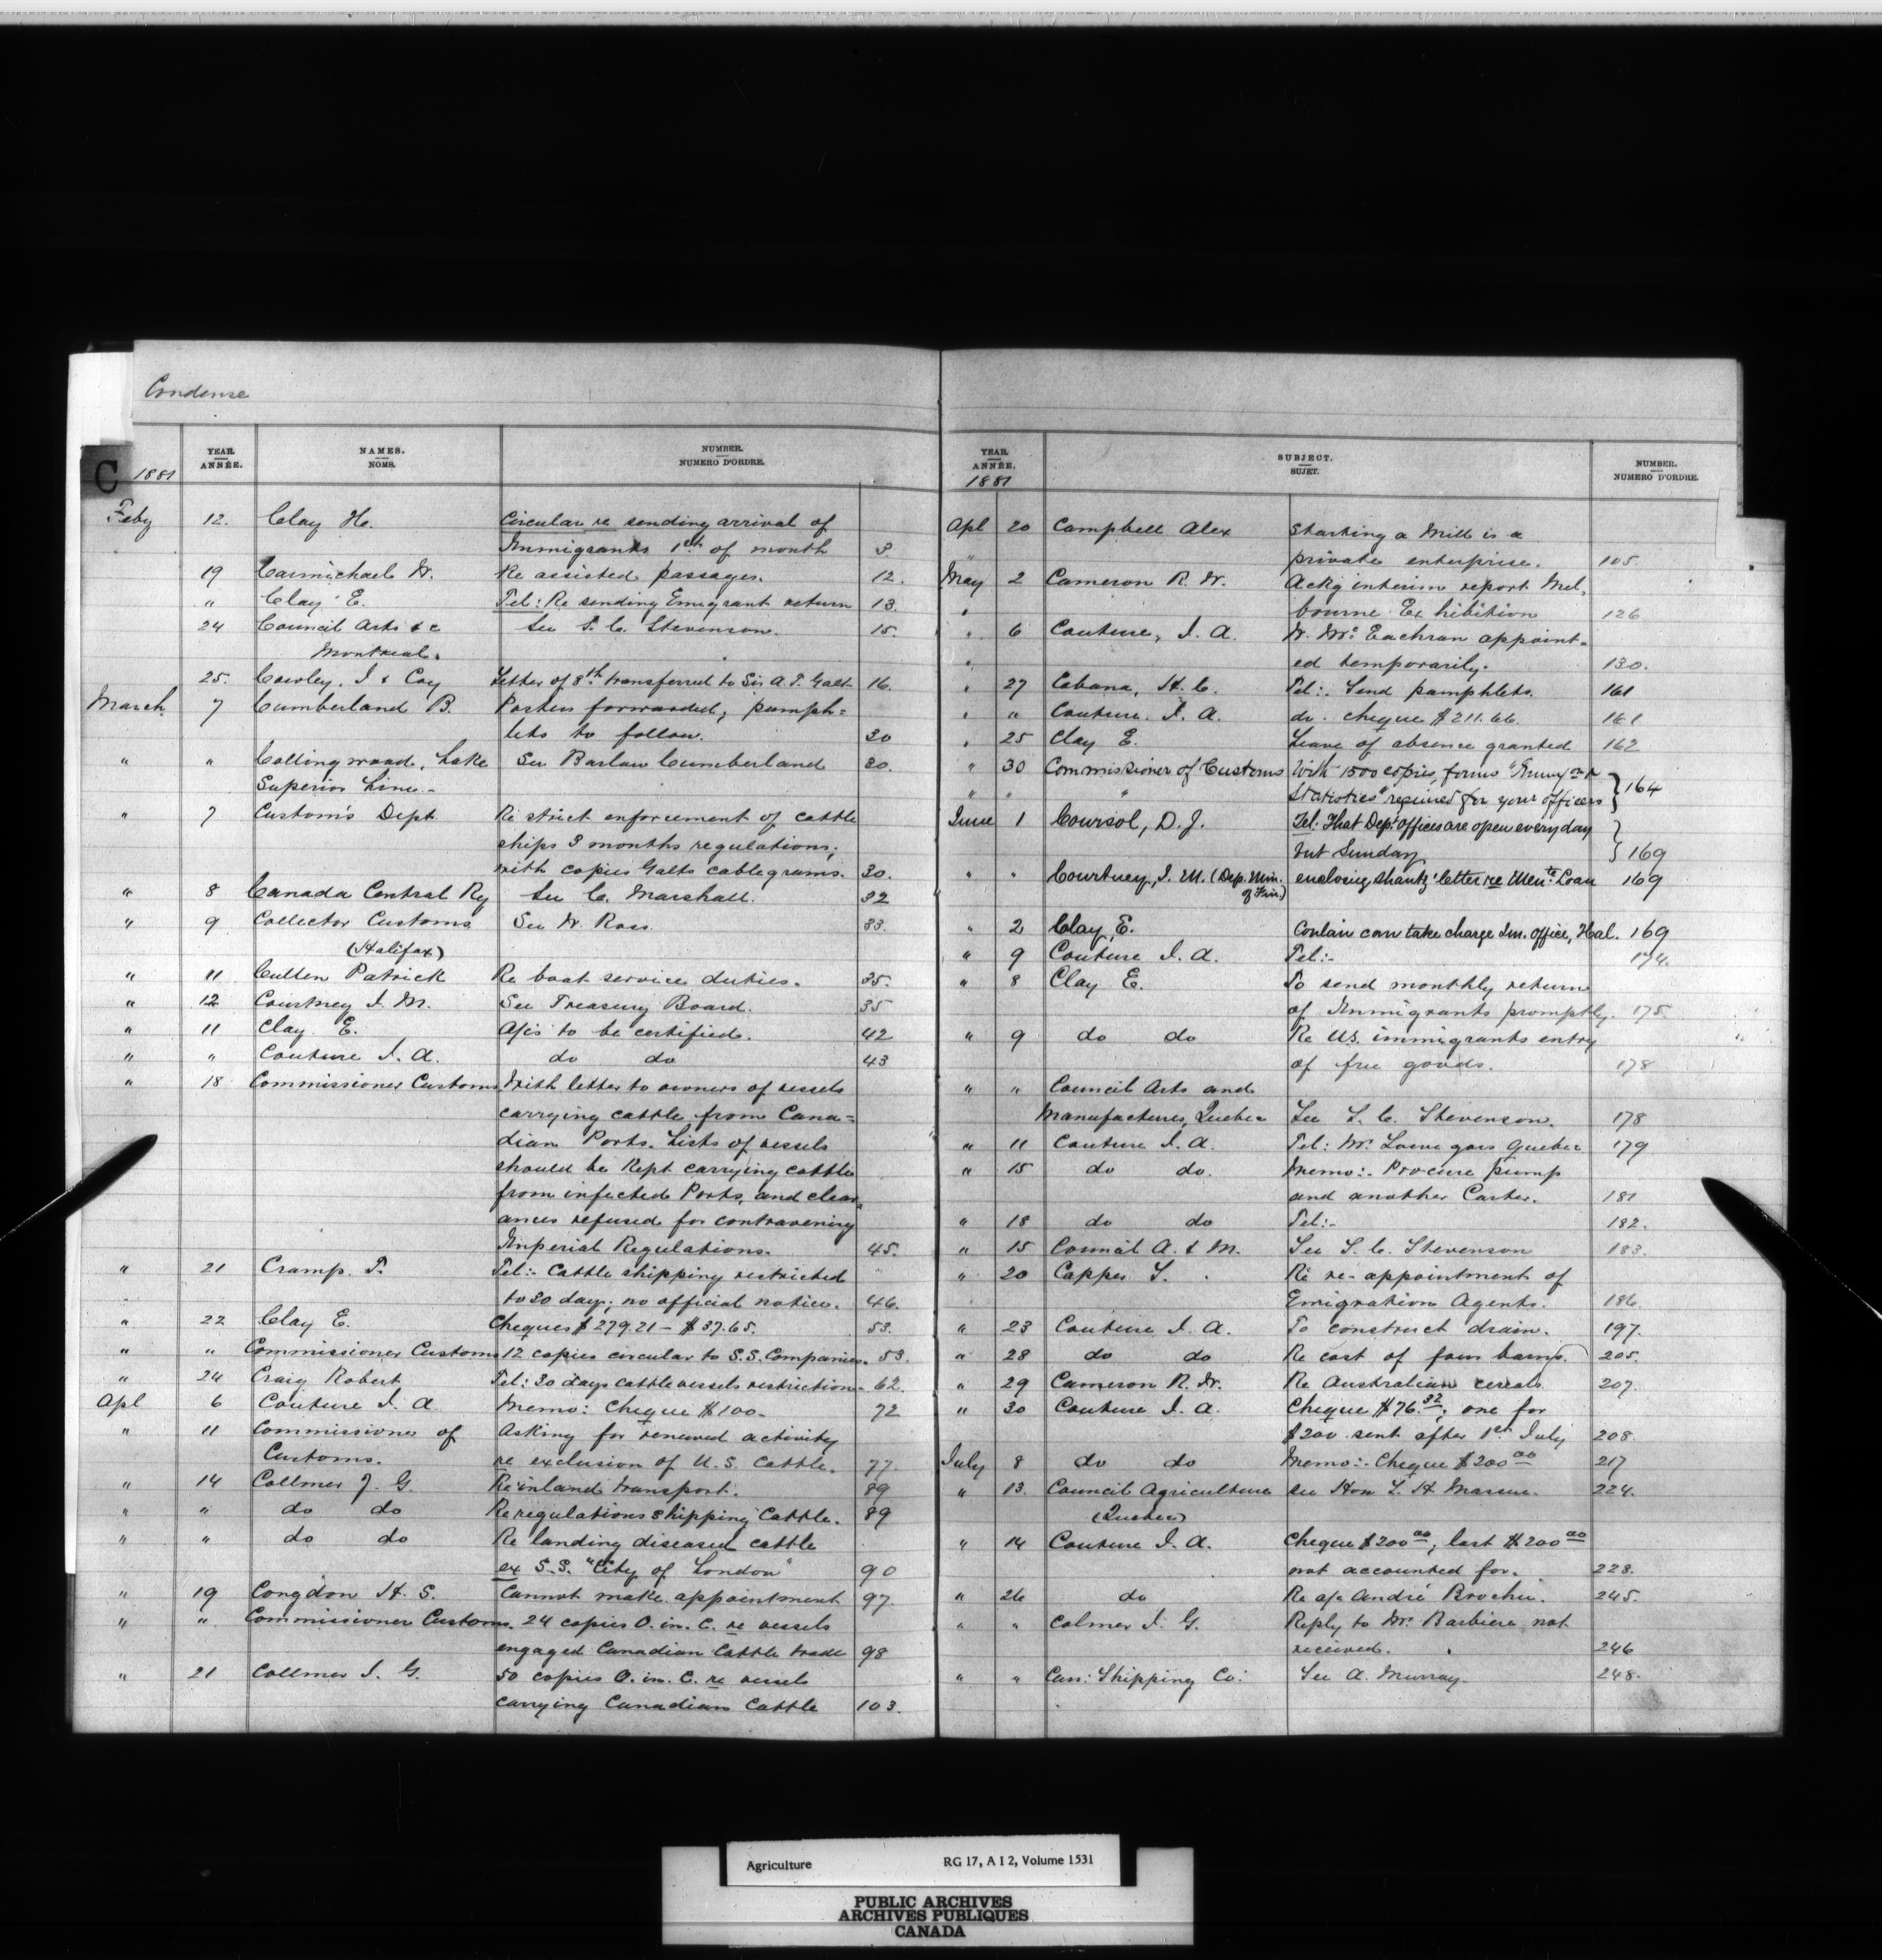 Condense
C
1881
YEAR. ANNÉE.
NAMES. NOMS.
NUMBER. NUMERO D'ORDRE.
Feby 12. Clay H. Circular re sending arrival of
Immigrants 1st of month 3.
19 Carmichael W. Re assisted passages. 12.
" Clay E. Tel: Re sending Emigrant return 13.
24 Council Arts &c See S. C. Stevenson. 15.
Montreal.
25. Cowley, J & Coy Letter of 8th transferred to Sir A. T. Galt 16.
March 7 Cumberland B. Posters forwarded; pamph=
lets to follow. 30
" " Collingwood, Lake See Barlow Cumberland 30.
Superior Line.
" 7 Custom's Dept Re strict enforcement of cattle
ships 3 months regulations;
with copies Galts cablegrams. 30.
" 8 Canada Central Ry See C. Marshall. 32
" 9 Collector Customs See W. Ross. 33.
(Halifax)
" 11 Cullen Patrick Re boat service duties. 35.
" 12 Courtney J. M. See Treasury Board. 35
" 11 Clay E. A/cs to be certified. 42
" " Couture J. A. do do 43
" 18 Commissioner Customs With letter to owners of vessels
carrying cattle from Cana=
dian Ports. Lists of vessels
should be kept carrying cattle
from infected Ports, and clear
ances refused for contravening
Imperial Regulations. 45.
" 21 Cramp. T. Tel:- Cattle shipping restricted
to 30 days; no official notice. 46.
" 22 Clay E. Cheques $279.21 - $37.65. 53.
" " Commissioner Customs 12 copies circular to S.S. Companies. 53.
" 24 Craig Robert Tel: 30 days cattle vessels restriction. 62.
Apl 6 Couture J. A Memo: Cheque $100. 72
" 11 Commissioner of Asking for renewed activity
Customs. re exclusion of U.S. Cattle. 77.
" 14 Collmer J. G. Re inland transport. 89
" " do do Re regulations shipping Cattle. 89
" " do do Re landing diseased cattle
ex S.S. "City of London" 90
" 19 Congdon H. S. Cannot make appointment 97.
" " Commissioner Customs. 24 copies O. in. C. re vessels
engaged Canadian Cattle trade 98
" 21 Collmer J. G. 50 copies O. in. C. re vessels
carrying Canadian Cattle 103.
YEAR. ANNÉE.
1881
SUBJECT. SUJET.
NUMBER. NUMERO D'ORDRE.
Apl 20 Campbell Alex Starting a Mill is a
" private enterprise. 105.
May 2 Cameron R. W. Ackg interim report Mel,
" bourne Exhibition 126
" 6 Couture, J. A. D. McEachran appoint=
" ed temporarily. 130.
" 27 Cabana, H. C. Tel:. Send pamphlets. 161
" " Couture. J. A. do. cheque $211.66. 161
" 25 Clay E. Leave of absence granted 162
" 30 Commissioner of Customs With 1500 copies, forms
" " " Statistics" required for your officers 164
June 1 Coursol, D. J. Tel. That Dep't offices are open every day
but Sunday 169
" " Courtney, J. M. (Dep. Min. of Fin.) enclosing Shantz' letter re Men'te Loan 169
" 2 Clay, E. Conlan can take charge Im. office, Hal. 169
" 9 Couture J. A. Tel:- 174.
" 8 Clay E. To send monthly return
of Immigrants promptly. 175.
" 9 do do Re U.S. immigrants entry
of free goods. 178
" " Council Arts and
Manufactures, Quebec See S. C. Stevenson. 178
" 11 Couture J. A. Tel: Mr. Lowe goes Quebec 179
" 15 do do. Memo:. Procure pump
and another Carter. 181
" 18 do do Tel:- 182.
" 15 Council A. & M. See S. C. Stevenson 183.
" 20 Capper S. Re re-appointment of
Emigration Agents. 186.
" 23 Couture J. A. To construct drain. 197.
" 28 do do Re cost of four barns. 205.
" 29 Cameron R. W. Re Australian cereals 207.
" 30 Couture J. A. Cheque $76.32; one for
$200 sent after 1st July 208.
July 8 do do Memo:. Cheque $200.00 217
" 13. Council Agriculture see Hon L. H. Massue. 224.
(Quebec)
" 14 Couture J. A. Cheque $200.00; last $200.00
not accounted for. 228.
" 26 do Re a/c André Brochu. 245.
" " Colmer J. G. Reply to Mr. Barbiere not
received. 246
" " Can: Shipping Co: See A. Murray. 248.
Agriculture RG 17, A I 2, Volume 1531
PUBLIC ARCHIVES
ARCHIVES PUBLIQUES
CANADA